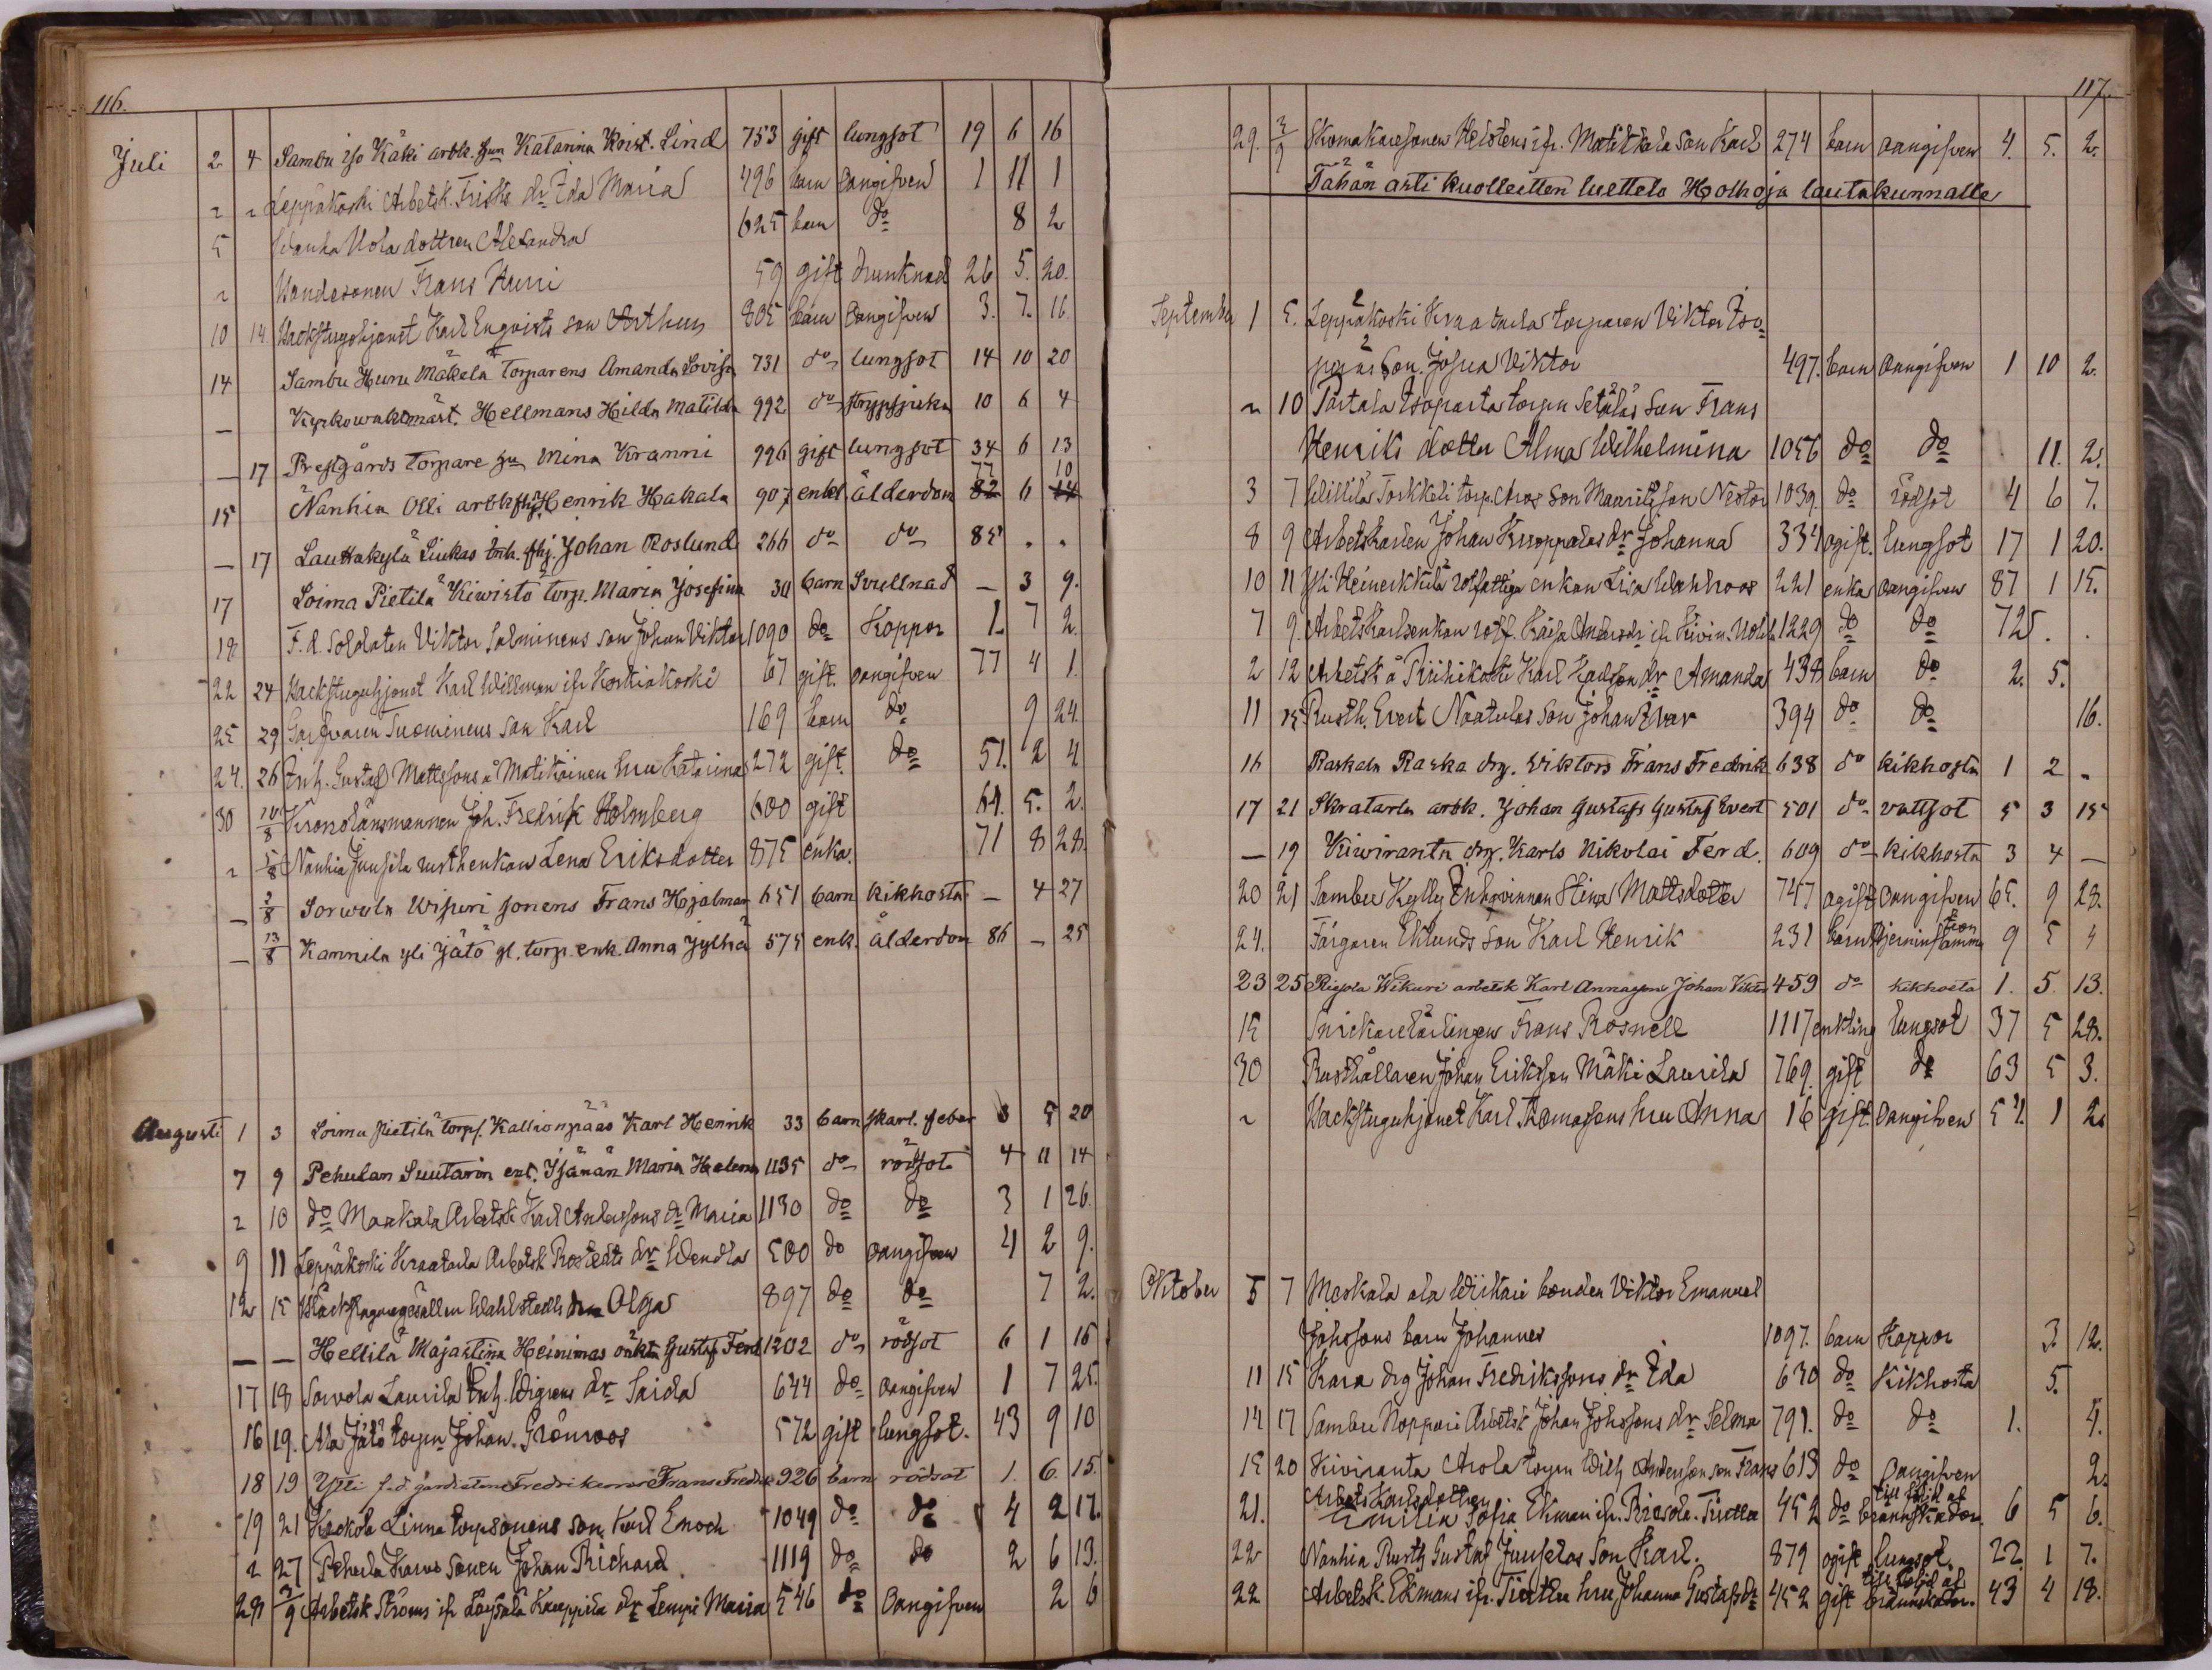 116.
Juli 2 4 Sambu iso Käki arbk. hun Katarina Krist. Lind 753 gift lungsot 19 6 16
" " Leppäkoski Arbetsk. Frisks dr Ida Maria 496 barn Oangifven 1 11 1
5 Uola dottren Alexandra 625 barn do 8 2
" Frans Henri 59 gift drunknad 26 5. 20.
10 14. Backstuguhjonet Karl Enqvists son Arthur 805 barn Oangifven 3. 7. 16
14 Sambu Huru Mäkelä torparens Amanda Lovisa 731 do lungsot 14 10 20
— Kyrkowaktmäst. Hellmans Hilda Matilda 992 do 10 6 4
— 17 Prestgårds torpare hu Mina Kranni 996 gift lungsot 34 6 13
15 Nanhia Olli arbk Henrik Hakala 907 enkl ålderdom 82 77 6 14 10
— 17 Lauttakylä Liukas inh. fhj. Johan Roslund 266 do do 85 . .
17 Loima Pietilä Kiwistö torp. Maria Josefina 30 barn Svullnad — 3 9.
18 F. d. Soldaten Viktor Salminens son Johan Viktor 1090 do Koppor 1. 7 2
22 24 Backstuguhjonet Karl Willman ifr Koskiakoski 67 gift. oangifven 77 4 1.
25 29 Garfvaren Tuominens son Karl 169 barn do 9 24.
24. 26 Inh. Gustaf Mattssons å Matikainen hru Katarina 272 gift. do 51. 2 4
30 10/8 Kronolänsmannen Joh. Fredrik Holmberg 600 gift 64. 5. 2.
" 5/8 Nanhia Juusela rusthenkan Lena Eriksdotter 875 enka. 71 8 28.
— 2/8 Sorwola Wipuri sonens Frans Hjalmar 651 barn kikhosta — 4 27
— 13/8 Kannila yli Jätö gl. torp. enk. Anna Jylhä 575 enk. ålderdom 86 — 25
Augusti 1 3 Loima Pietilä torp. Kallionpääs Karl Henrik 33 barn skarl. feber 3 5 20
7 9 Pehulan Suutarin Maria Helena 1135 do rödsot 4 11 14
2 10 do Maakala Arbetsk Karl Anderssons dr Maria 1130 do do 3 1 26.
9 11 Leppäkoski Kraatarla Arbetsk Rostedts dr Wendla 500 do oangifven 4 2 9.
12 15 Wahlstedts Olga 897 do do 7 2.
— — Hellilä Majastina Heinimas Gustaf Ferd 1202 do rödsot 6 1 16
17 18 Sorvola Laurila Inh. Wigrens dr Saida 644 do oangifven 1 7 25.
16 19. Ala Jätö torpn Johan Grönroos 572 gift lungsot. 43 9 10
18 19 Ylli f.d. gardisten Fredrikssons Frans Fredrik 926 barn rödsot 1. 6. 15.
19 21 Keskola Linna torpsonens son Karl Enoch 1049 do do 4 2 17.
2 27 Pehula Karvo sonen Johan Richard 1119 do do 2 6 13.
28 2/9 Arbetsk Ströms ifr Löysälä Kauppila dr Lempi Maria 546 do Oangifven 2 6
117.
29. 2/9 Skomakaresonen ifr. Matikkala son Karl 274 barn oangifven 4. 5. 2.
Tähän asti kuolleitten luettelo Holhoja lautakunnalle
September 1 5. Leppäkoski Kraatarla torparen Viktor Iso-
perä son Josua Viktor 497. barn oangifven 1 10 2.
" 10 Tortala Isoparta torpn Setälä son Frans
Henriks dotter Alma Wilhelmina 1056 do do 11. 2.
3 7 Willilä Torkkeli torp. Aros son Mauritz son Nestor 1039. do rödsot 4 6 7.
8 9 Arbetskarlen Johan Kuoppalas dr Johanna 334 ogift. lungsot 17 1 20.
10 11 Yli Heinerkkilä rotfattiga enkan Lisa Wahlroos 221 enka oangifven 87 1 15.
7 9. Arbetskarlsenkan rotf. Kajsa Andersdr ifr 1229 do do 72 5. .
2 12 Arbetsk å Riihikoski Karl Karlsson dr Amanda 434 barn do 2. 5.
11 15 Rusth. Evert Naatulas son Johan Ivar 394 do do 16.
16 Raskala Raska drg. Viktors Frans Fredrik 638 do kikhosta 1 2 .
17 21 Skratarla arbk. Johan Gustafs Gustaf Evert 501 do vattsot 5 3 15
— 19 Kiwiranta drg. Karls Nikolai Ferd. 609 do kikhosta 3 4 —
20 21 Sambu Kylly Inhqvinnan Stina Mattsdotter 747 ogift oangifven 65. 9 28.
24. Färgaren Eklunds son Karl Henrik 231 barn Hjerninflammation 9 5 4
23 25 Riesola Wikuri arbetsk Karl Annasson Johan Viktor 459 do kikhosta 1. 5. 13.
15 Snickarelärlingen Frans Rosnell 1117 enkling lungsot 37 5 28.
30 Rusthållaren Johan Eriksson Mäki Laurila 769. gift do 63 5 3.
" Backstuguhjonet Karl Thomassons hru Anna 16 gift. oangifven 57. 1 2.
Oktober 5 7 Meskala ala Wiikari bonden Viktor Emanuel
Johssons barn Johannes 1097. barn Koppor 3. 12.
11 15 Kara drg Johan Fredrikssons dr Ida 630 do Kikhosta 5.
14 17 Sambu Noppari Arbetsk Johan Johssons dr Selma 791. do do 1. 4.
15 20 Kiviranta Arola torpn Wilh Andersson son Frans 613 do Oangifven 2.
21. Arbetskarlsdottern Emilia Sofia Ekman ifr. Riesola Tiettu 452 do till följd af brännskador. 6 5 6.
22 Nanhia Rusth Gustaf Juuselas son Karl. 879 ogift lungsot. 22. 1 7.
22 Arbetsk. Ekmans ifr. Tiettu hru Johanna Gustafsdr 452 gift till följd af brännskador. 43 4 18.